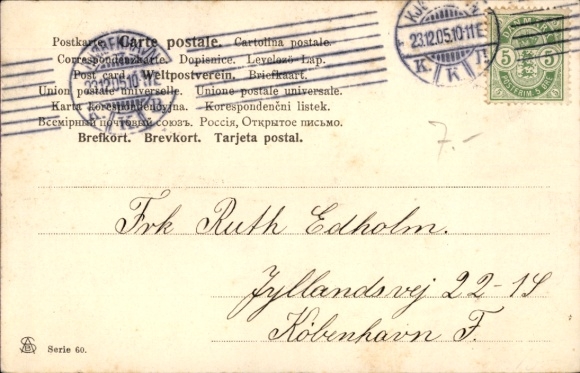 Postkarte. Carte postale. Cartolina postale.
Correspondenzkarte. Dopisnice. Levelező-Lap.
Post card. Weltpostverein. Briefkaart.
Union postale universelle. Unione postale universale.
Karta korespondencyjna. Korespondenční listek.
Всемірный почтовый союзъ. Россія, Открытое письмо.
Brefkort. Brevkort. Tarjeta postal.
23.12.05.10-11E
K. K
DANMARK
5 5
7.-
Frk Ruth Edholm.
Jyllandsvej 22-1S
København F.
Serie 60.